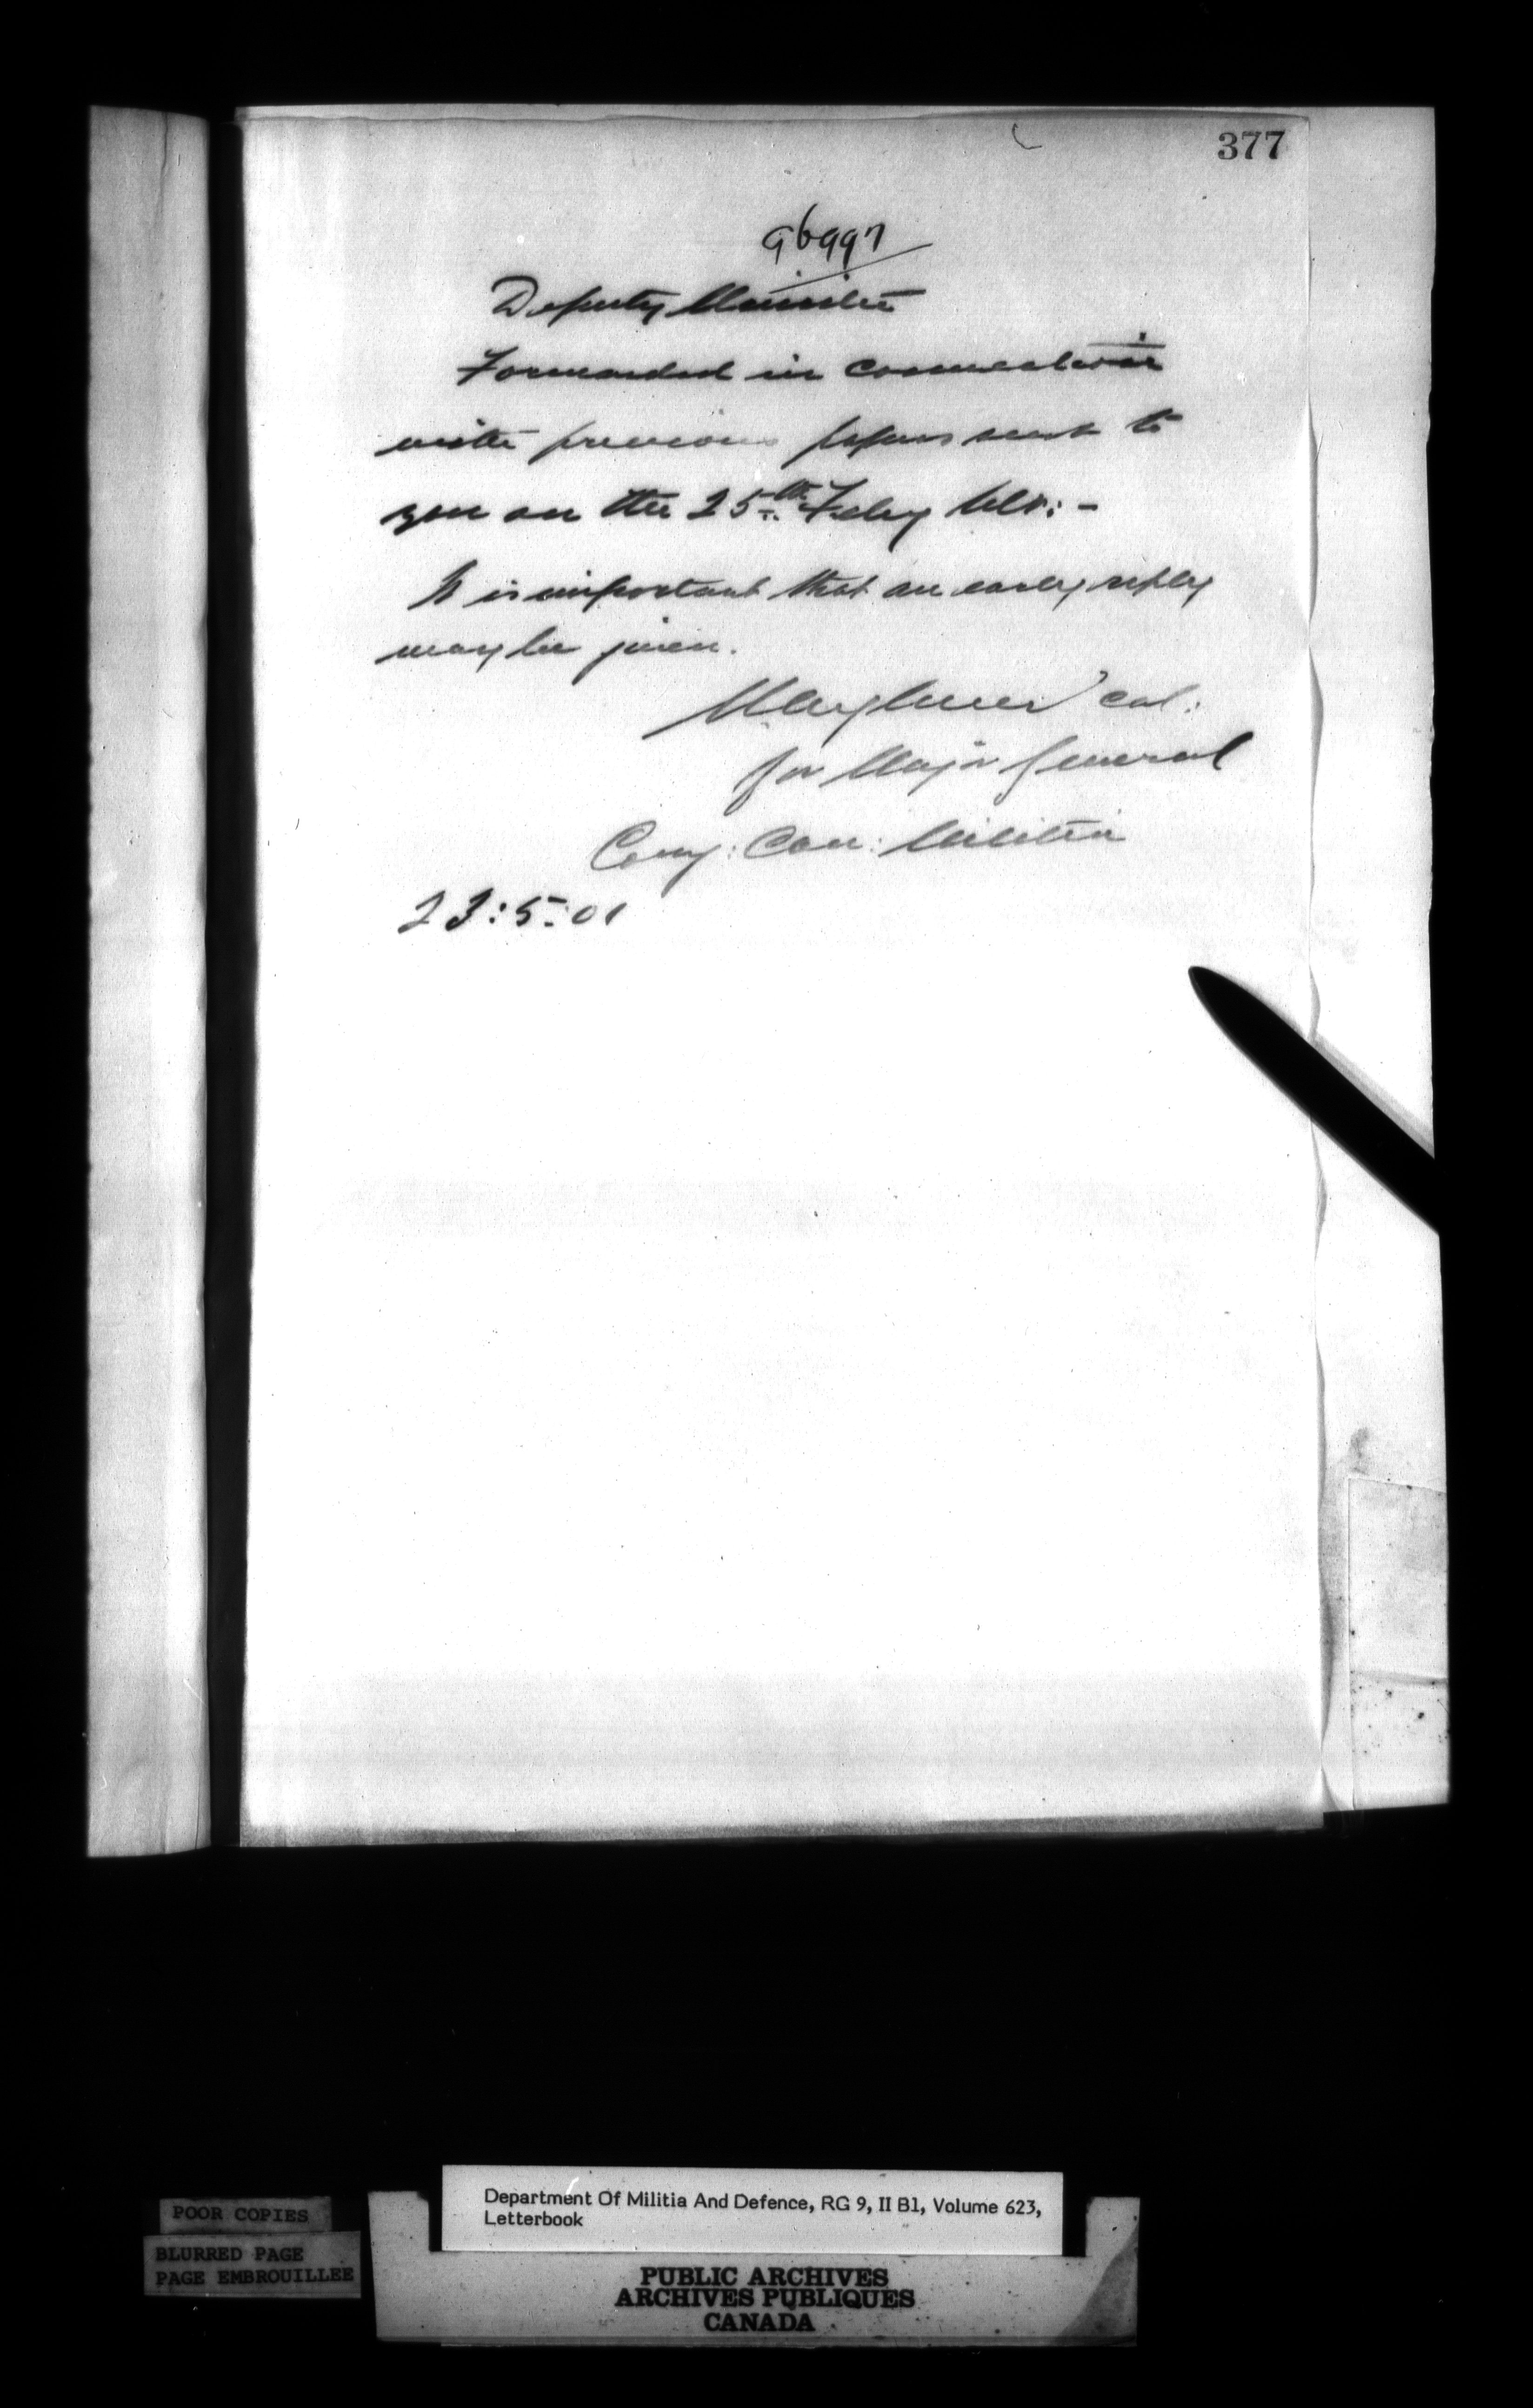 377
96997
Deputy Minister
Forwarded in connection
with previous papers sent to
you on the 25th Feby
It is important that an early reply
may be given.
Col:
for Major General
Comg: Can: Militia
23:5:01
POOR COPIES
BLURRED PAGE
PAGE EMBROUILLEE
Department Of Militia And Defence, RG 9, II B1, Volume 623,
Letterbook
PUBLIC ARCHIVES
ARCHIVES PUBLIQUES
CANADA